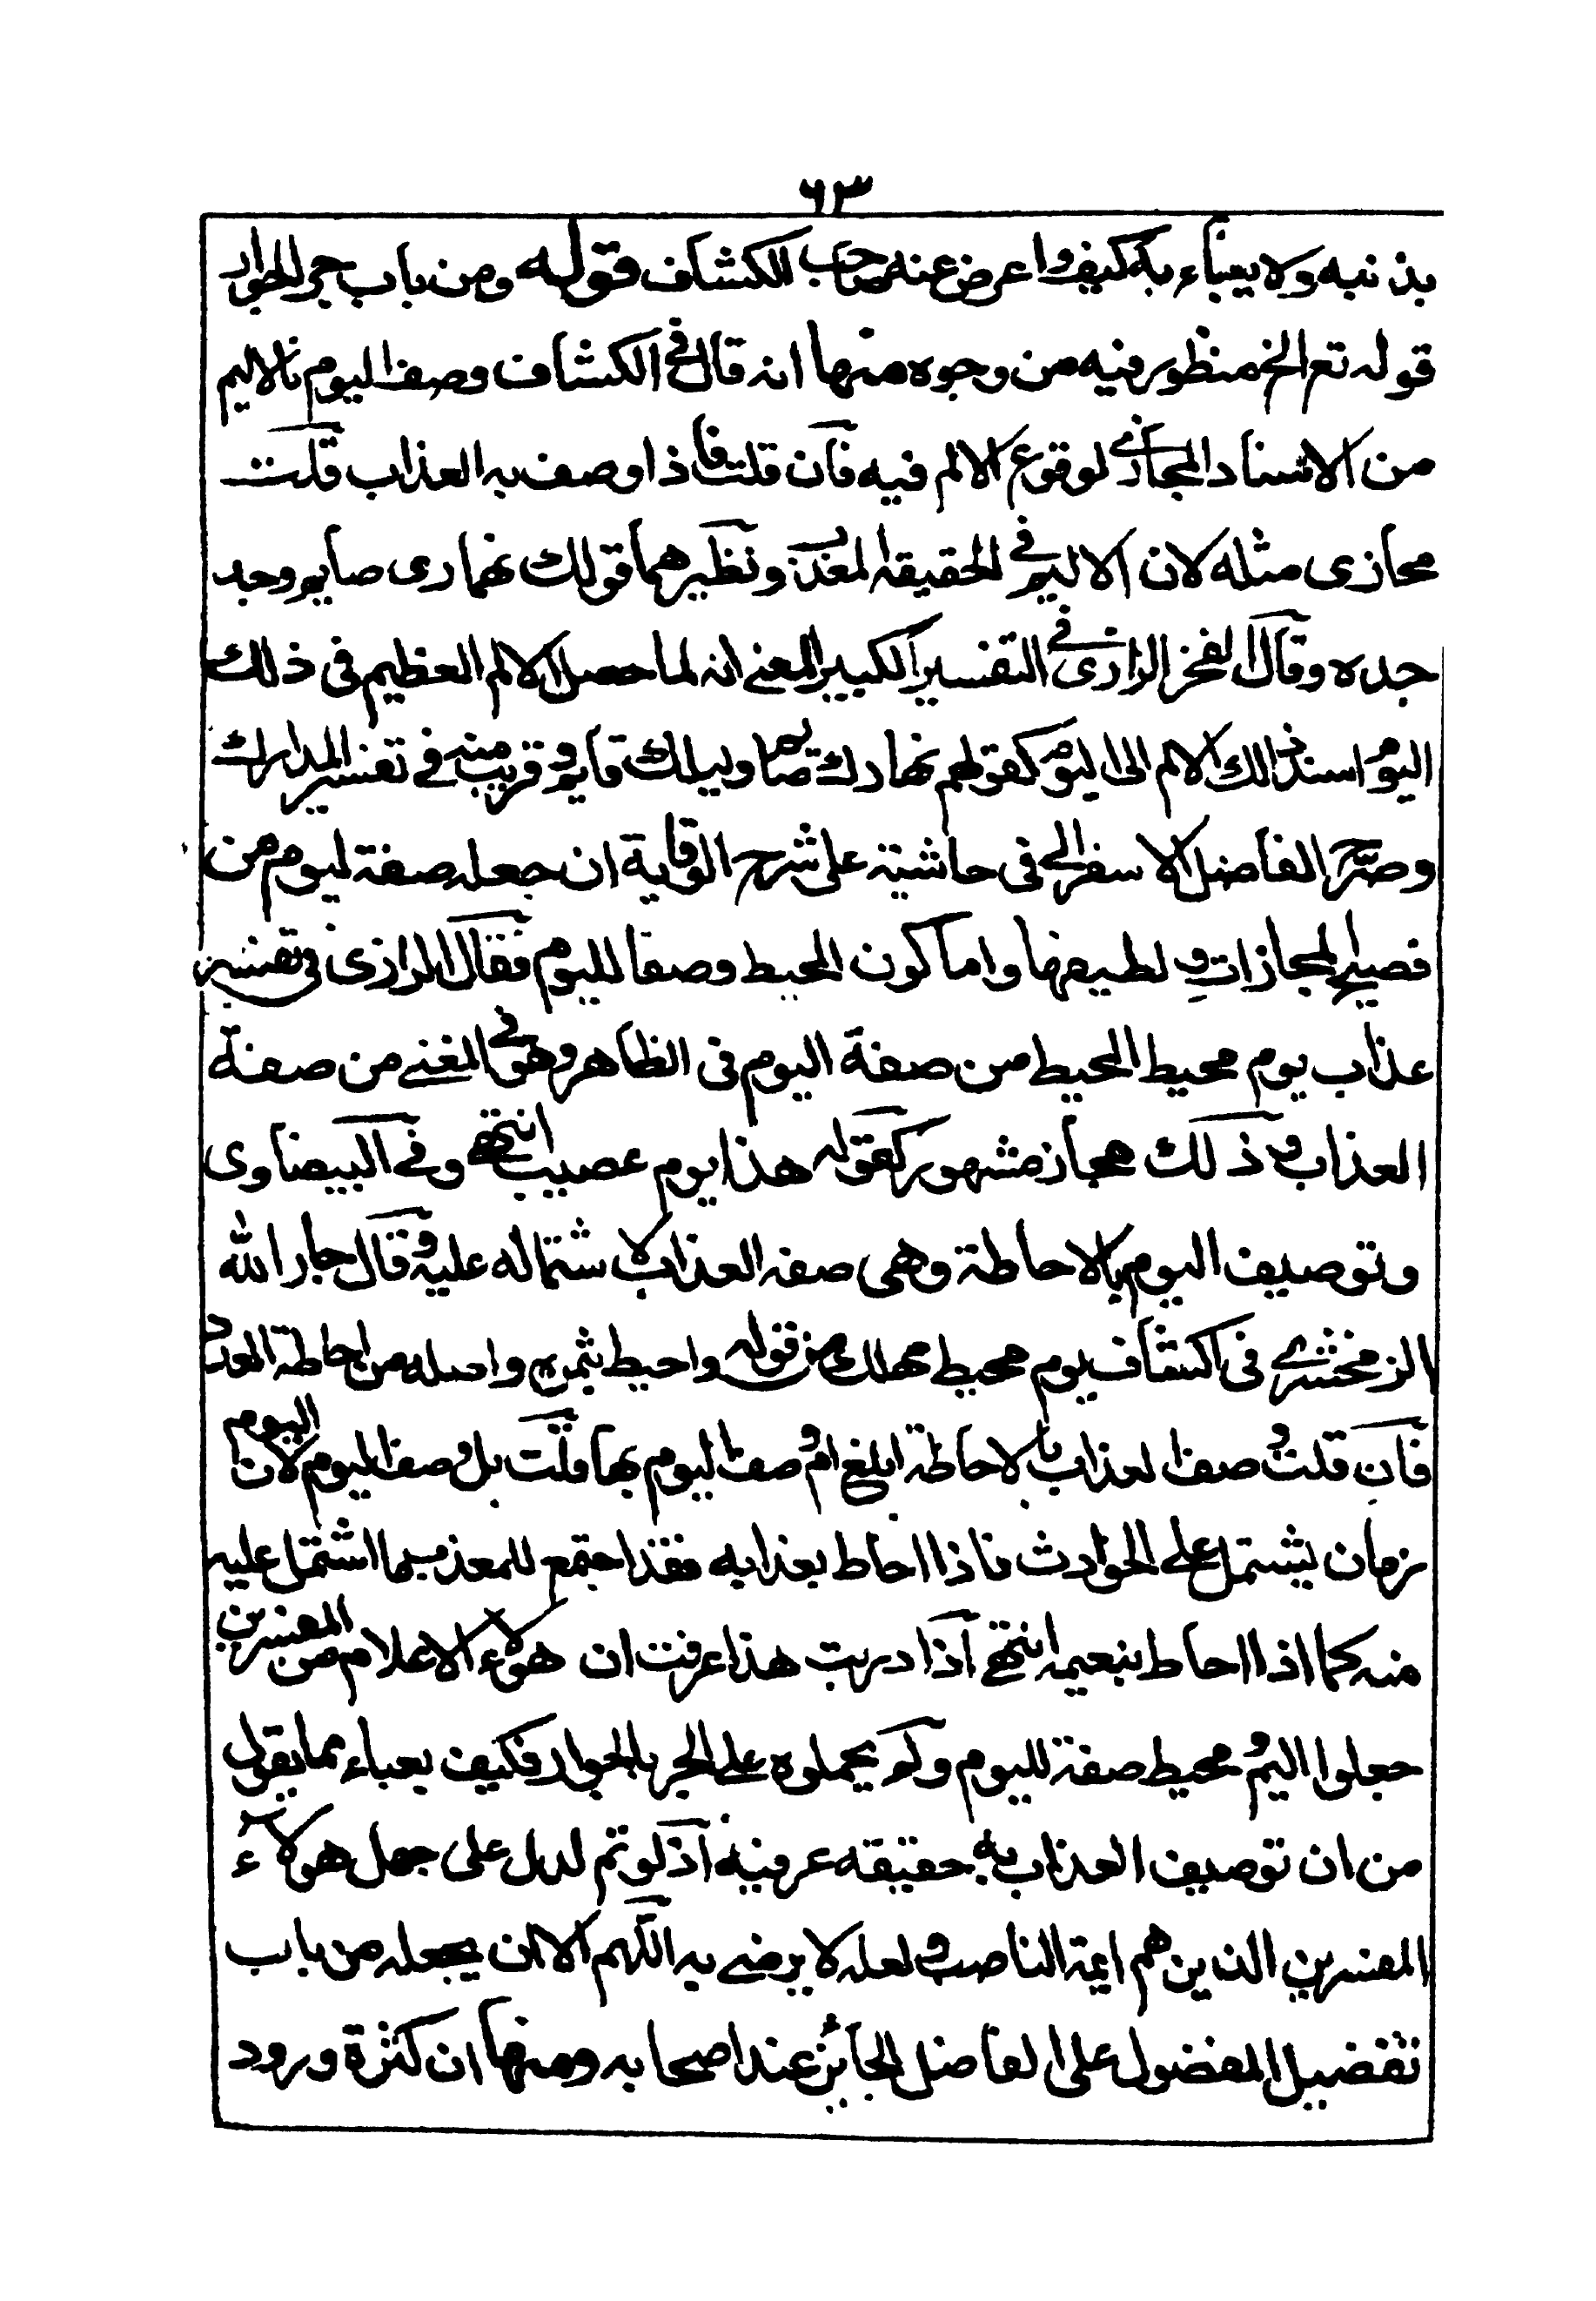 ٦٣
بذنبه ولا يعباء به كيف واعرض عنه صاحب الكشاف قوله ومن باب جر الجوار
قوله تع الخ منظور فيه من وجوه منها انه قال فى الكشاف وصف اليوم بالاليم
من الاسناد المجازى لوقوع الالم فيه فان قلت فاذا وصف به العذاب قلت
مجازى مثله لان الاليم فى الحقيقه المعذب ونظيرهما قولك نهارى صايم وجد
جده وقال الفخر الرازى فى التفسير الكبير المعنى انه لما حصل الالم العظيم فى ذلك
اليوم اسند ذالك الالم الى اليوم كقولهم نهارك صايم وليلك قايم وقريب منه فى تفسير المدارك
وصرح الفاضل الاسفرالى فى حاشيته على شرح الوقاية ان جعله صفة ليوم من
فصيح المجازات ولطيفها واما كون المحيط وصفا لليوم فقال الرازى فى تفسير
عذاب يوم محيط المحيط من صفة اليوم فى الظاهر وهو فى المعنى من صفة
العذاب و ذلك مجاز مشهور كقوله هذا يوم عصيب انتهى وفى البيضاوى
وتوصيف اليوم بالاحاطة وهى صفه العذاب لاشتماله عليه وقال جار الله
الزمخشرى فى اكشاف يوم محيط مهلك من قوله واحيط بثمره واصله من احاطة العدد
فان قلت وصف العذاب بالاحاطة ابلغ ام وصف اليوم بها قلت بل وصف اليوم لان اليوم
زمان يشتمل على الحوادث فاذا احاط بعذابه فقد اجتمع للمعذب ما اشتمل عليه
منه كما اذا احاط بنعيمه انتهى اذا دريت هذا عرفت ان هولاء الاعلام من المفسرين
جعلوا اليم و محيط صفة لليوم ولم يحملوه على الجر بالجوار فكيف يعباء بما يقول
من ان توصيف العذاب به حقيقه عرفيه اذ لو تم لدل على جهل هولاء
المفسرين الذين هم ايمة الناصب ولعله لا يرضى به اللهم الا ان يجعله من باب
تفضيل المفضول على الفاضل الجائز عند اصحابه ومنها ان كثرة ورود